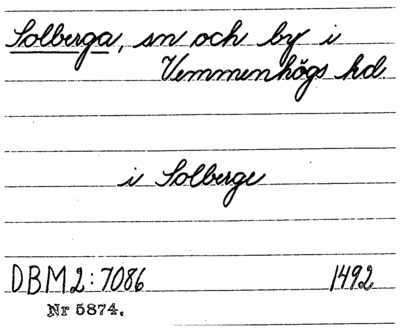 Solberga, sn och by i
Vemmenhögs hd.
i Solberge
DBM2:7086 1492
Nr 5874.